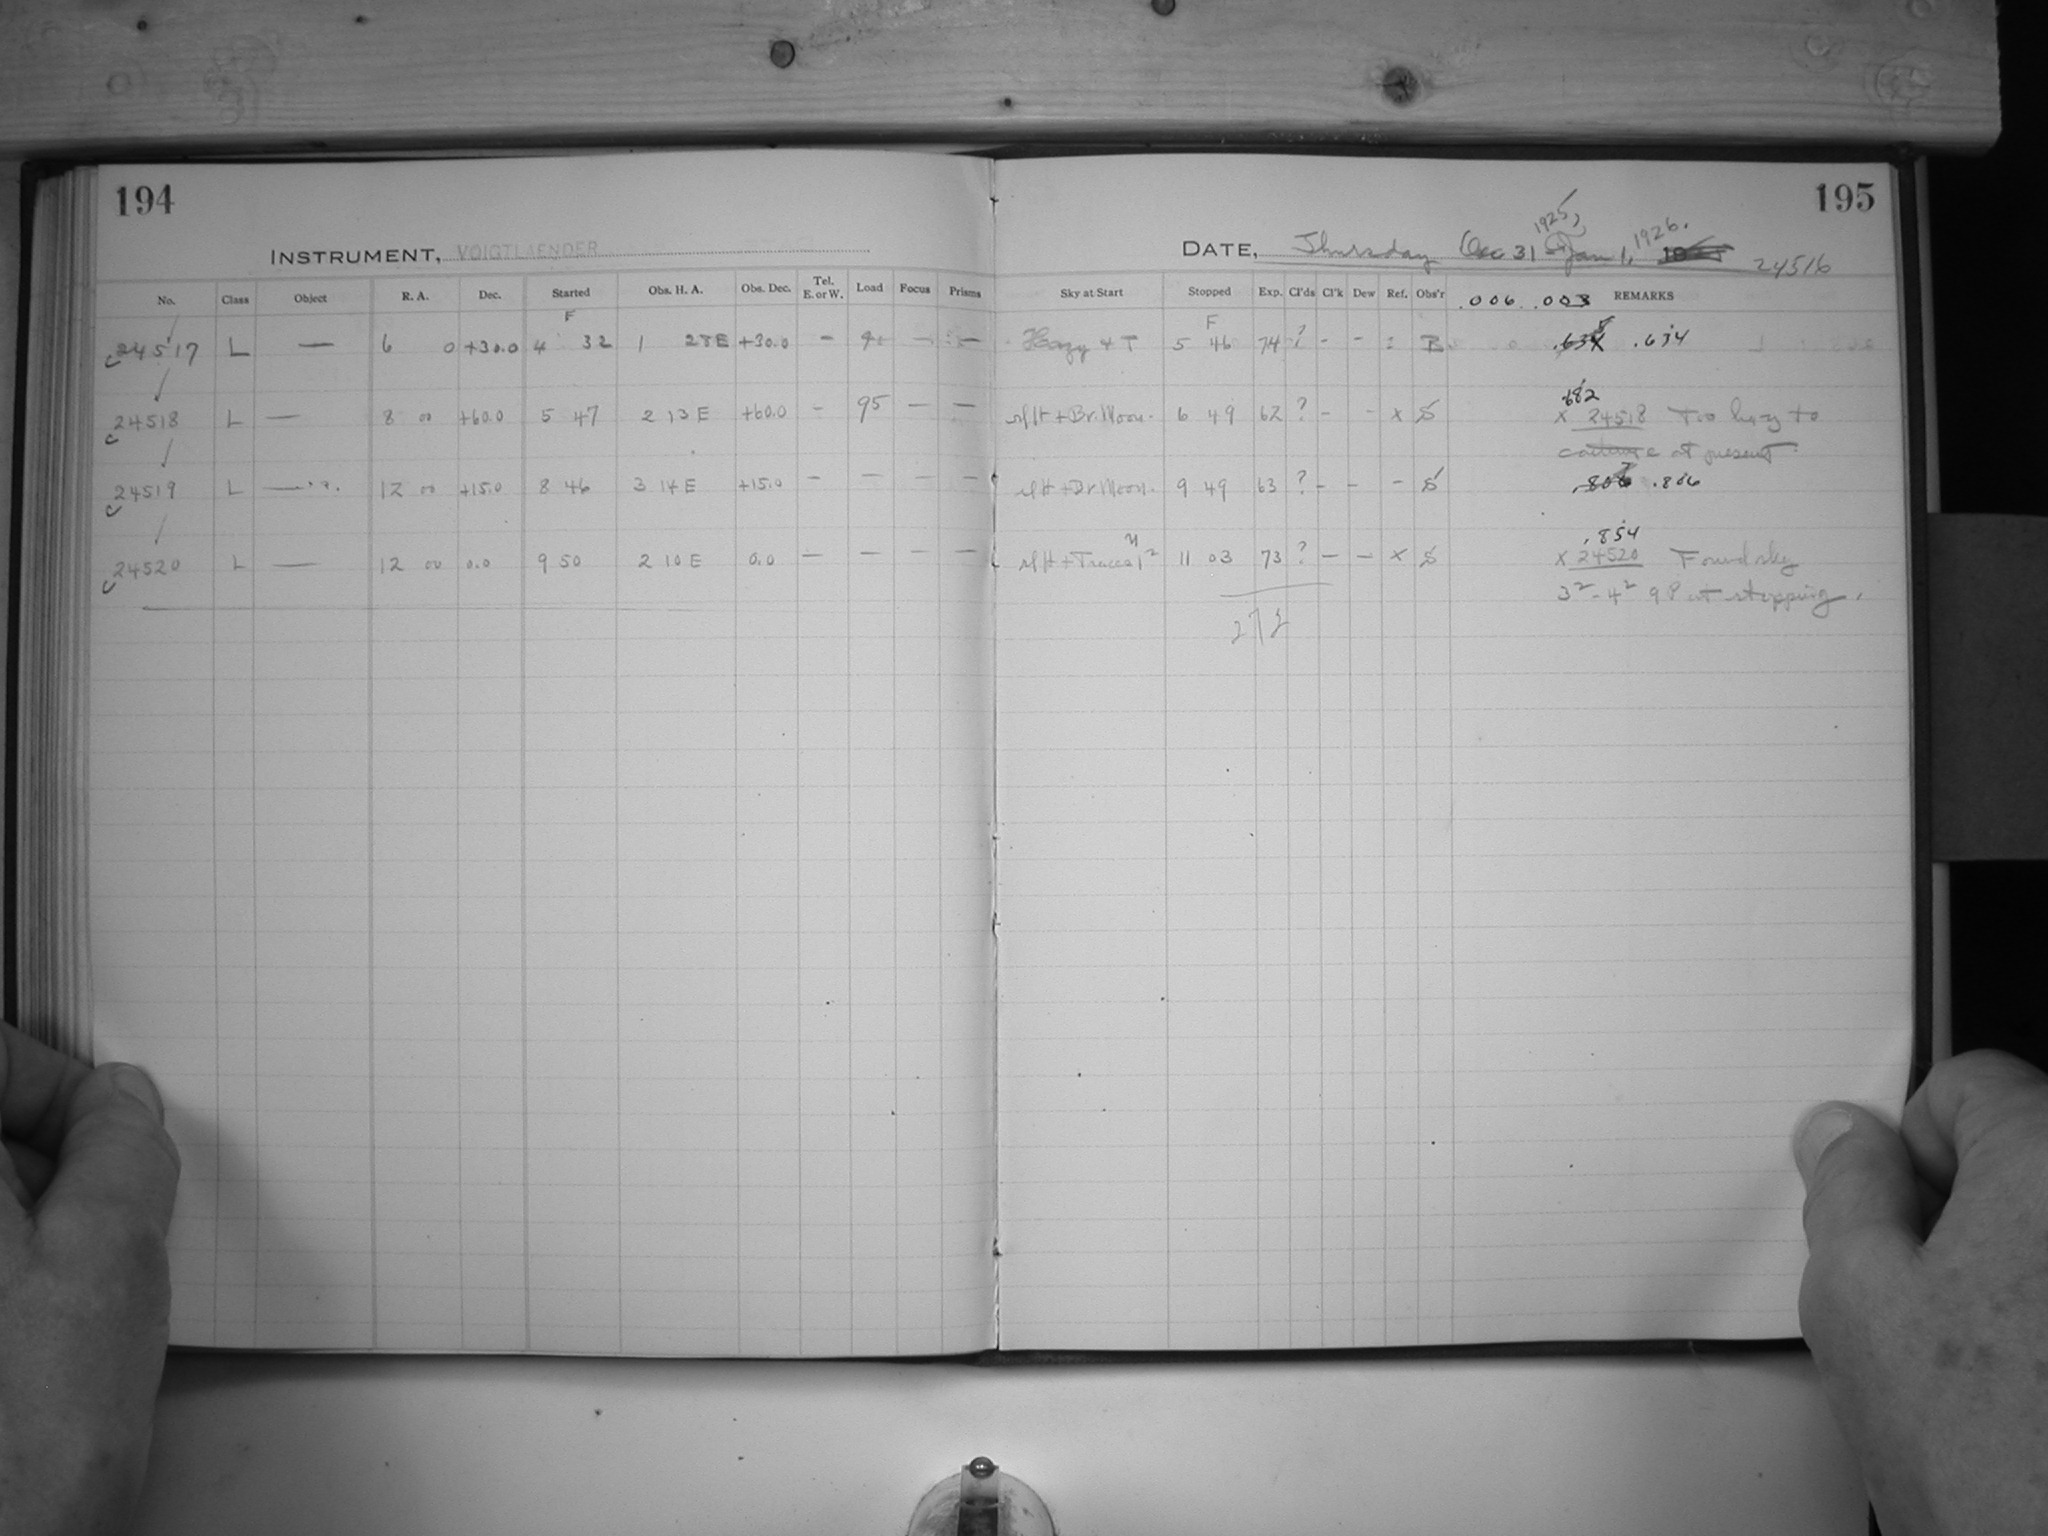 194
INSTRUMENT, VOIGTLAENDER
No. Class Object R. A. Dec. Started Obs. H. A. Obs. Dec. Tel. E. or W. Load Focus Prisms
24517 L — 6 0 +30.0 F 4 32 1 28E +30.0 — — —
24518 L — 8 00 +60.0 5 47 2 13 E +60.0 — 95 — —
24519 L — 12 00 +15.0 8 46 3 14 E +15.0 — — — —
24520 L — 12 00 0.0 9 50 2 10 E 0.0 — — — —
195
1925, 1926.
DATE, Thursday Dec 31 Jan 1, 24516
Sky at Start Stopped Exp. Cl'ds Cl'k Dew Ref. Obs'r .006 .003 REMARKS
Hazy + T F 5 46 74 ? - - : .634
.682
+ Br. Moon. 6 49 62 ? - - x S x 24518 Too hazy to
continue at present.
+ Br Moon. 9 49 63 ? - - - S .806
.854
11 03 73 ? - - x S x 24520 Found sky
3² - 4² at stopping.
272